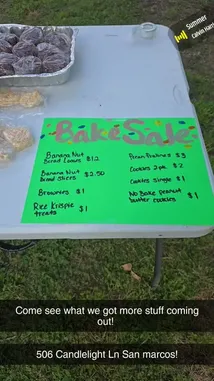 Summer
Calvin Harris
Bake Sale
Banana Nut
Bread Loaves $12
Banana Nut
bread slices $2.50
Brownies $1
Rice Krispie
treats $1
Pecan Pralines $3
Cookies 2pk $2
Cookies single $1
No Bake peanut
butter cookies $1
Come see what we got more stuff coming
out!
506 Candlelight Ln San marcos!